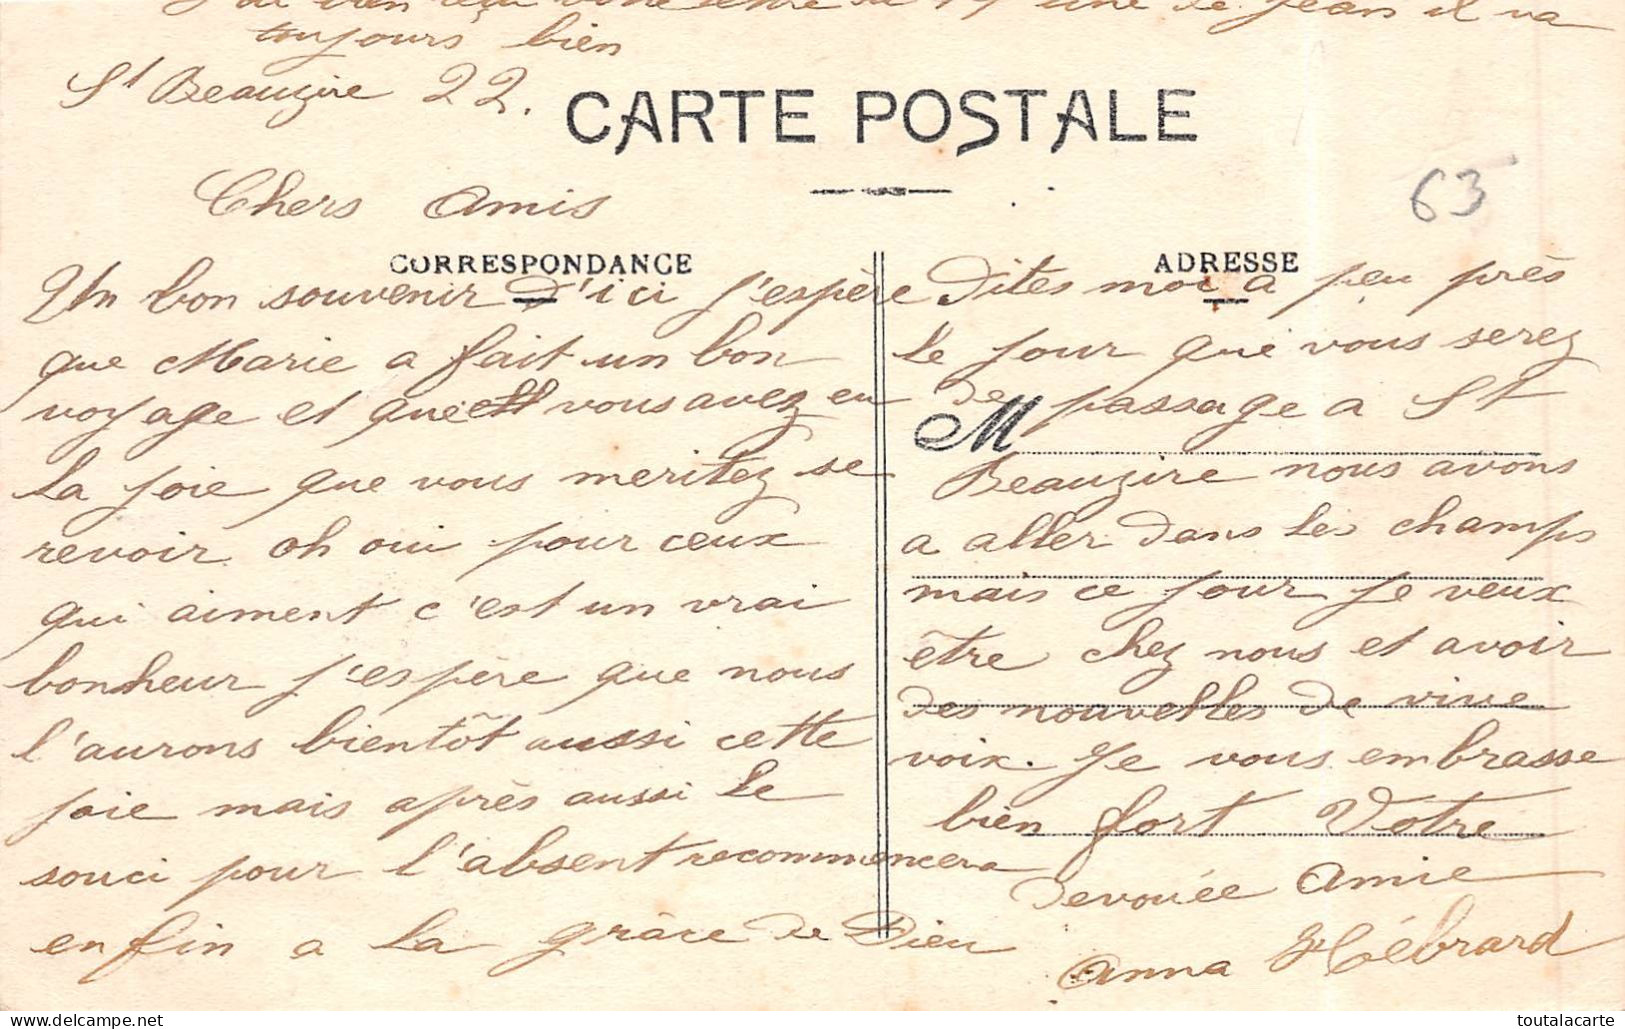 J'ai bien reçu votre lettre du 19 une de Jean il va
toujours bien
St Beauzire 22.
CARTE POSTALE
63
Chers Amis
CORRESPONDANCE
Un bon souvenir d'ici J'espère
que Marie a fait un bon
voyage et que vous avez eu
la joie que vous meritez se
revoir oh oui pour ceux
qui aiment c'est un vrai
bonheur J'espère que nous
l'aurons bientôt aussi cette
joie mais après aussi le
souci pour l'absent recommencera
enfin a la grâce de Dieu
ADRESSE
Dites moi a peu près
le jour que vous serez
de passage a St
M
Beauzire nous avons
a aller dans les champs
mais ce jour je veux
être chez nous et avoir
des nouvelles de vive
voix. Je vous embrasse
bien fort Votre
devouée Amie
Anna Hébrard
toutalacarte